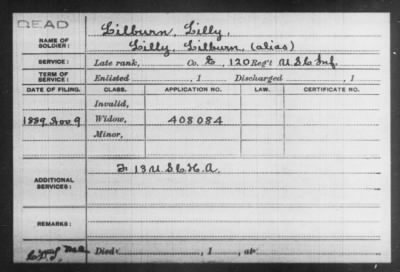 DEAD
NAME OF SOLDIER: Lilburn, Lilly,
Lilly, Lilburn (alias)
SERVICE: Late rank, Co. E, 120 Reg't U.S.C. Inf.
TERM OF SERVICE: Enlisted , 1 Discharged , 1
DATE OF FILING. CLASS. APPLICATION NO. LAW. CERTIFICATE NO.
Invalid,
1889 Nov 9 Widow, 408084
Minor,
ADDITIONAL SERVICES: F 13 U.S.C.H.A.
REMARKS:
Died , 1 , at